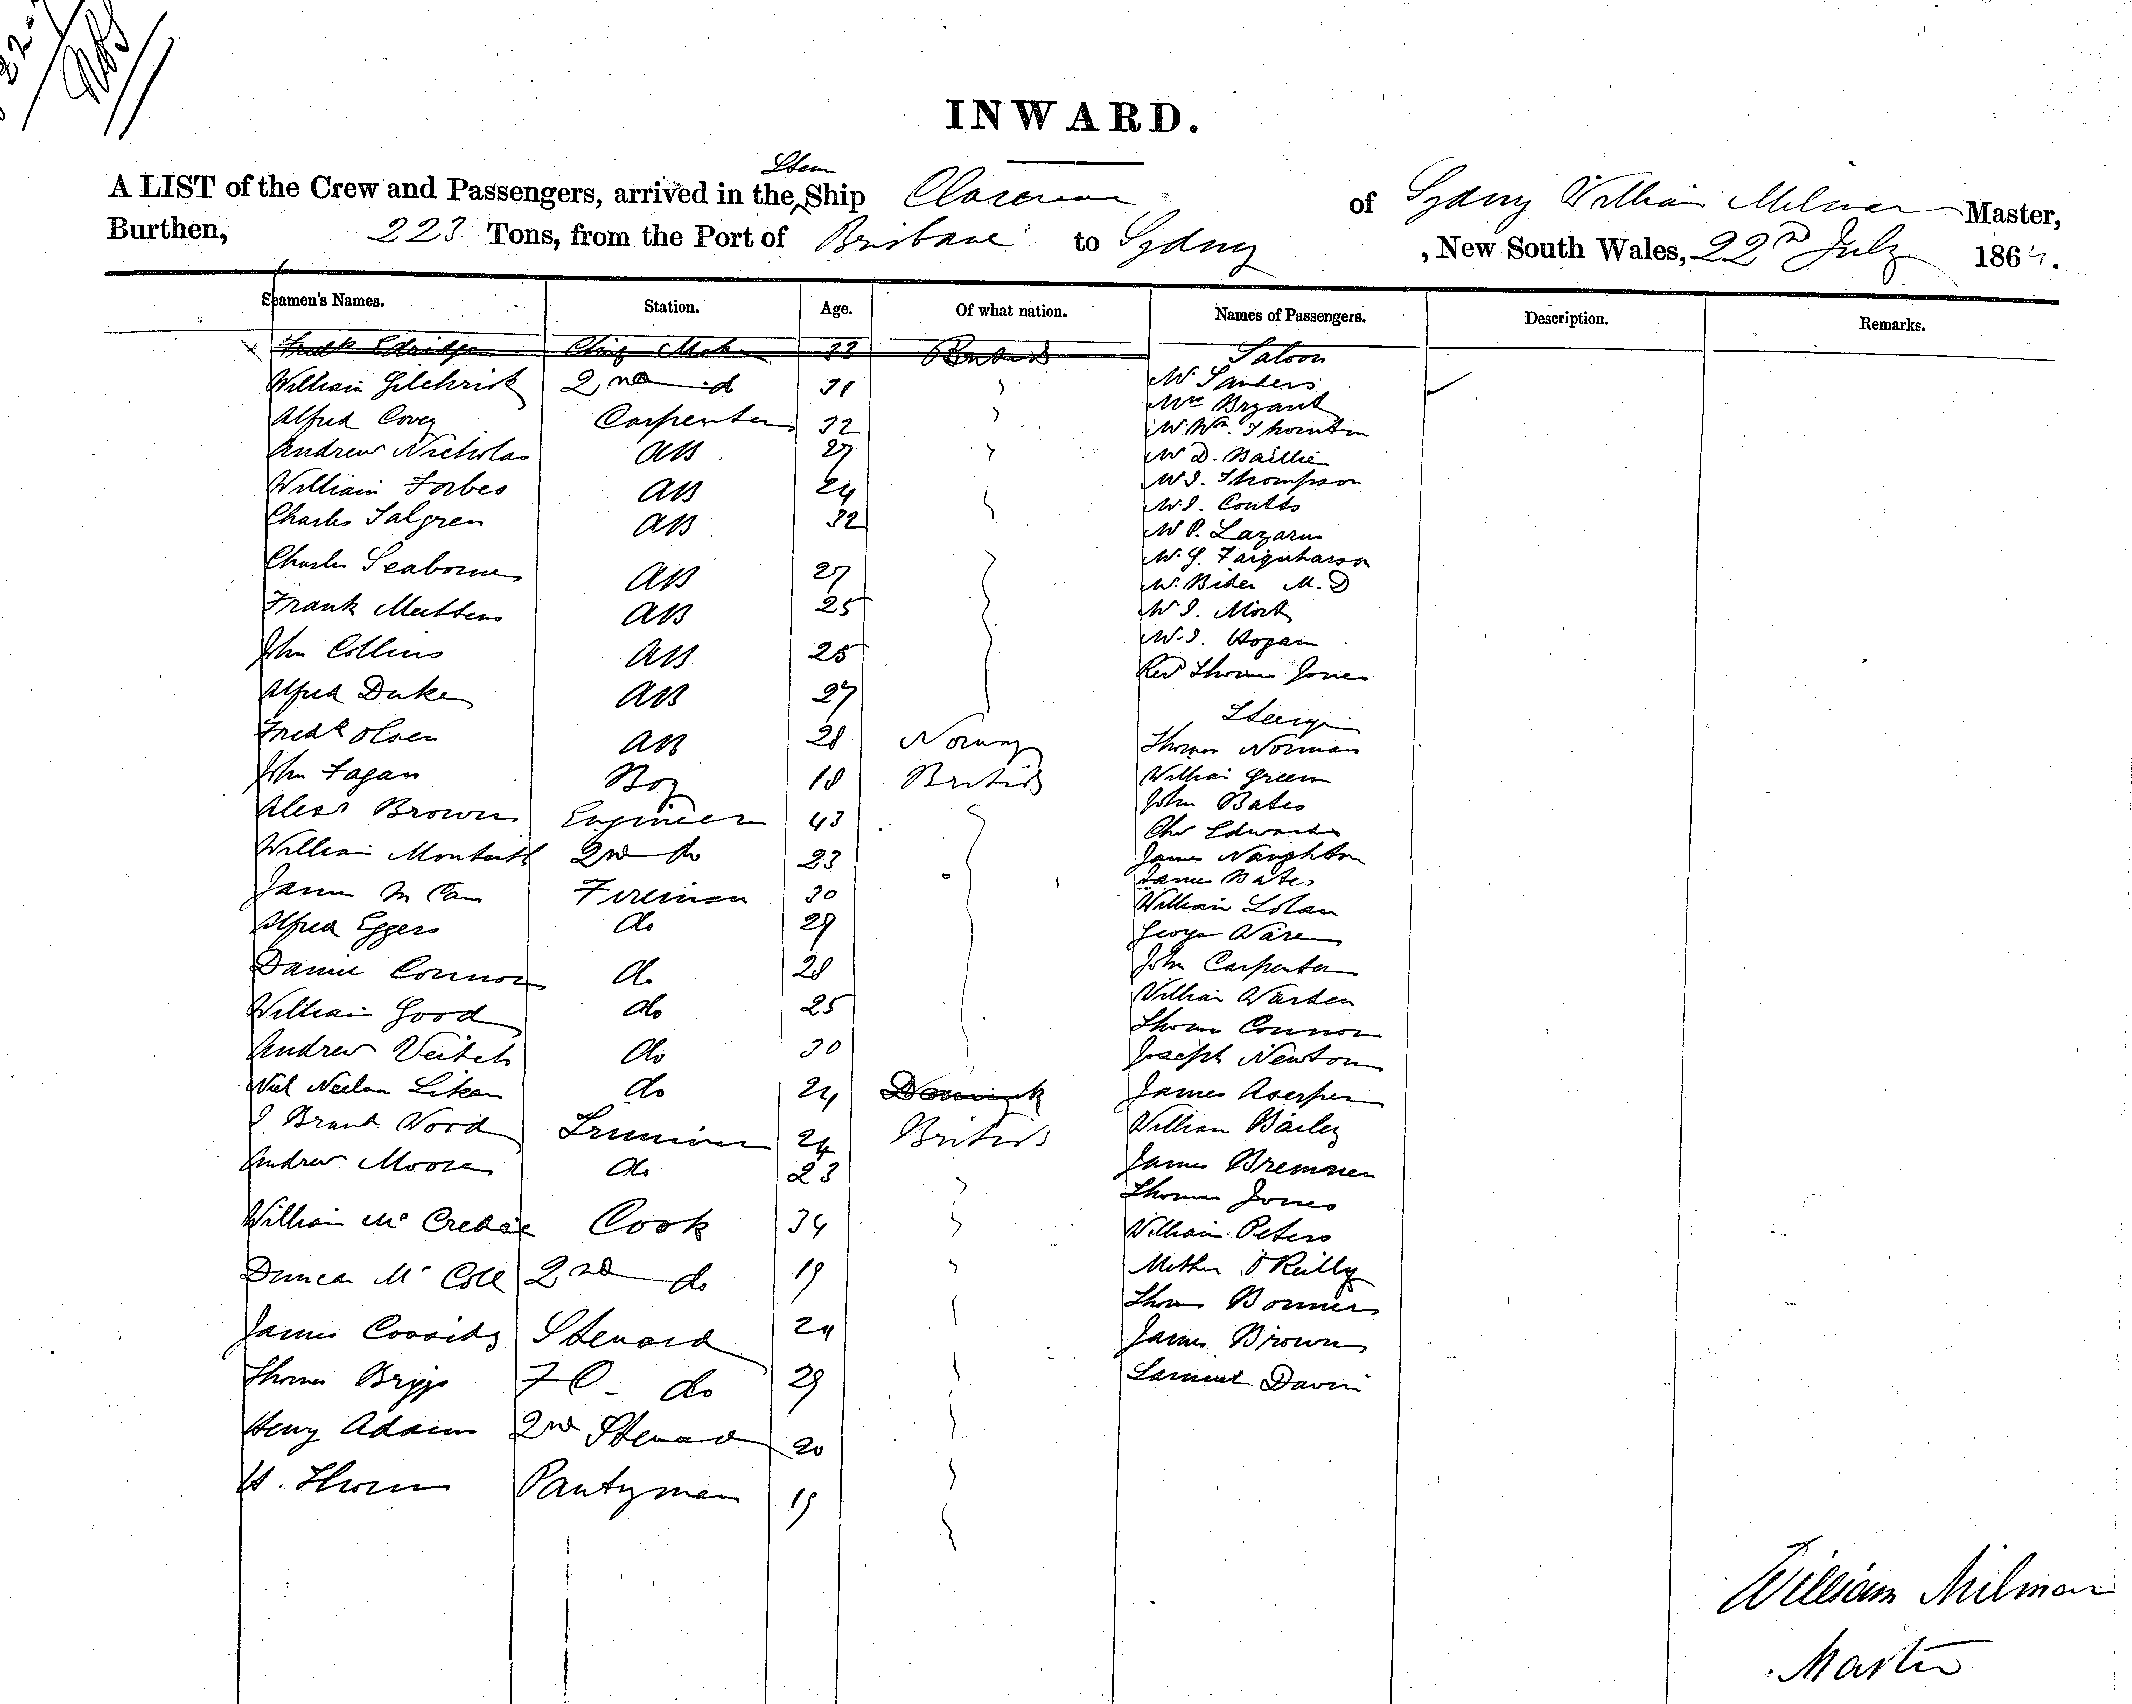 INWARD.
A LIST of the Crew and Passengers, arrived in the Steam Ship Clarence of Sydney William Milman Master,
Burthen, 223 Tons, from the Port of Brisbane to Sydney , New South Wales, 22nd July 186
Seamen's Names. Station. Age. Of what nation. Names of Passengers. Description. Remarks.
Chief Mate 33 British Saloon
William Gilchrist 2nd d 31 Mr Sanders
Alfred Covey Carpenter 32 Mrs Bryant
Mr Wm. Thornton
Andrew Nicholas AB 27 Mr D. Baillie
William Forbes AB 24 Mr J. Thompson
Charles Salgren AB 32 Mr J. Coutts
Mr P. Lazarus
Charles Seaborne AB 27 Mr G. Farquharson
Mr M.D
Frank AB 25 Mr J. Mort
John Collins AB 25 Mr J. Hogan
Alfred Duke AB 27 Revd Thomas Jones
Steerage
Fredk Olsen AB 28 Norway Thomas Norman
John Fagan Boy 18 British William Green
Alexr Brown Engineer 43 John Bates
Chs Edwards
William Monteith 2nd do 23 James Naughton
James Mc Fireman 30 James Bates
Alfred Eggers do 29 William
George Ware
Daniel Connor do 28 John Carpenter
William Good do 25 William Warden
Thomas Connor
Andrew Veitch do 30 Joseph Newton
do 24 James
J Brand Wood Trimmer 24 British William Bailey
Andrew Moore do 23 James Bremner
Thomas Jones
William McCredie Cook 34 William Peters
Duncan McColl 2nd do 19 O'Reilly
James Cassidy Steward 24 Thomas Bonner
James Brown
Thomas Briggs FC do 29 Samuel Davis
Henry Adams 2nd Steward 20
H. Thorn Pantryman 19
William Milman
Master